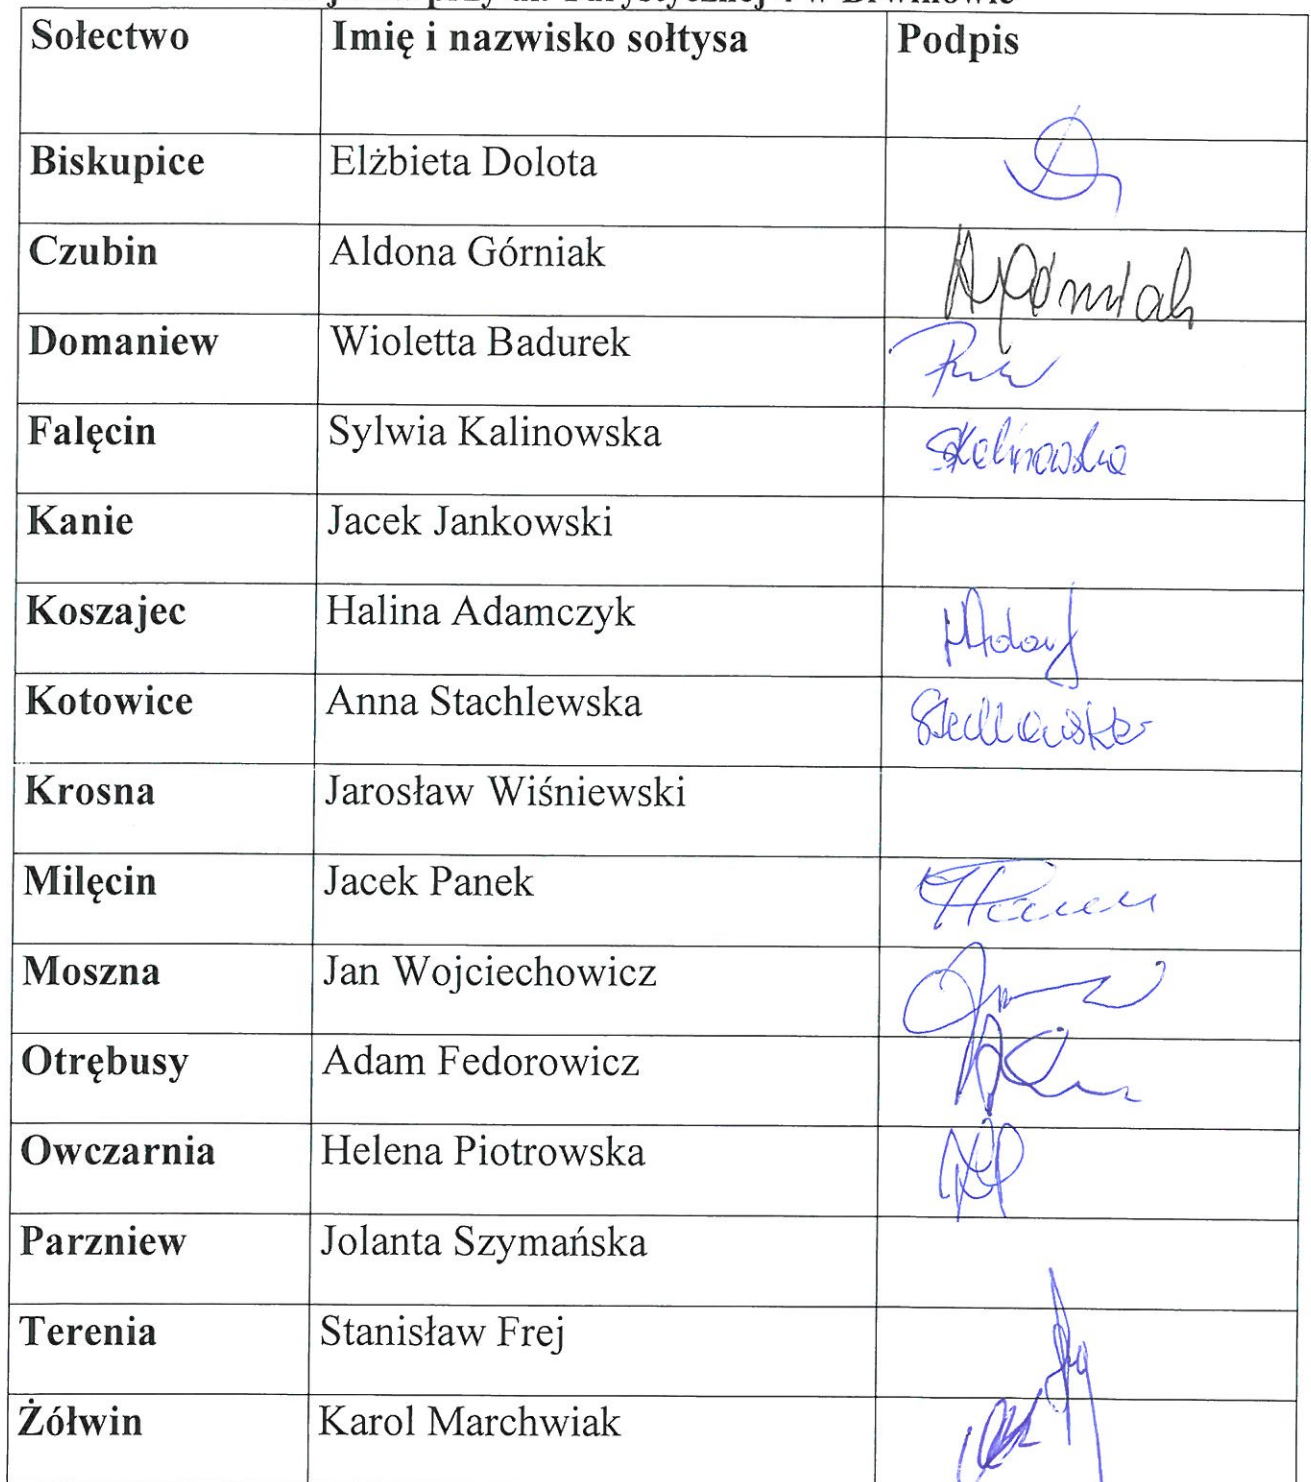 przy ul. Turystycznej 4 w Brwinowie
Sołectwo Imię i nazwisko sołtysa Podpis
Biskupice Elżbieta Dolota
Czubin Aldona Górniak A Górniak
Domaniew Wioletta Badurek
Falęcin Sylwia Kalinowska SKalinowska
Kanie Jacek Jankowski
Koszajec Halina Adamczyk
Kotowice Anna Stachlewska
Krosna Jarosław Wiśniewski
Milęcin Jacek Panek
Moszna Jan Wojciechowicz
Otrębusy Adam Fedorowicz
Owczarnia Helena Piotrowska
Parzniew Jolanta Szymańska
Terenia Stanisław Frej
Żółwin Karol Marchwiak